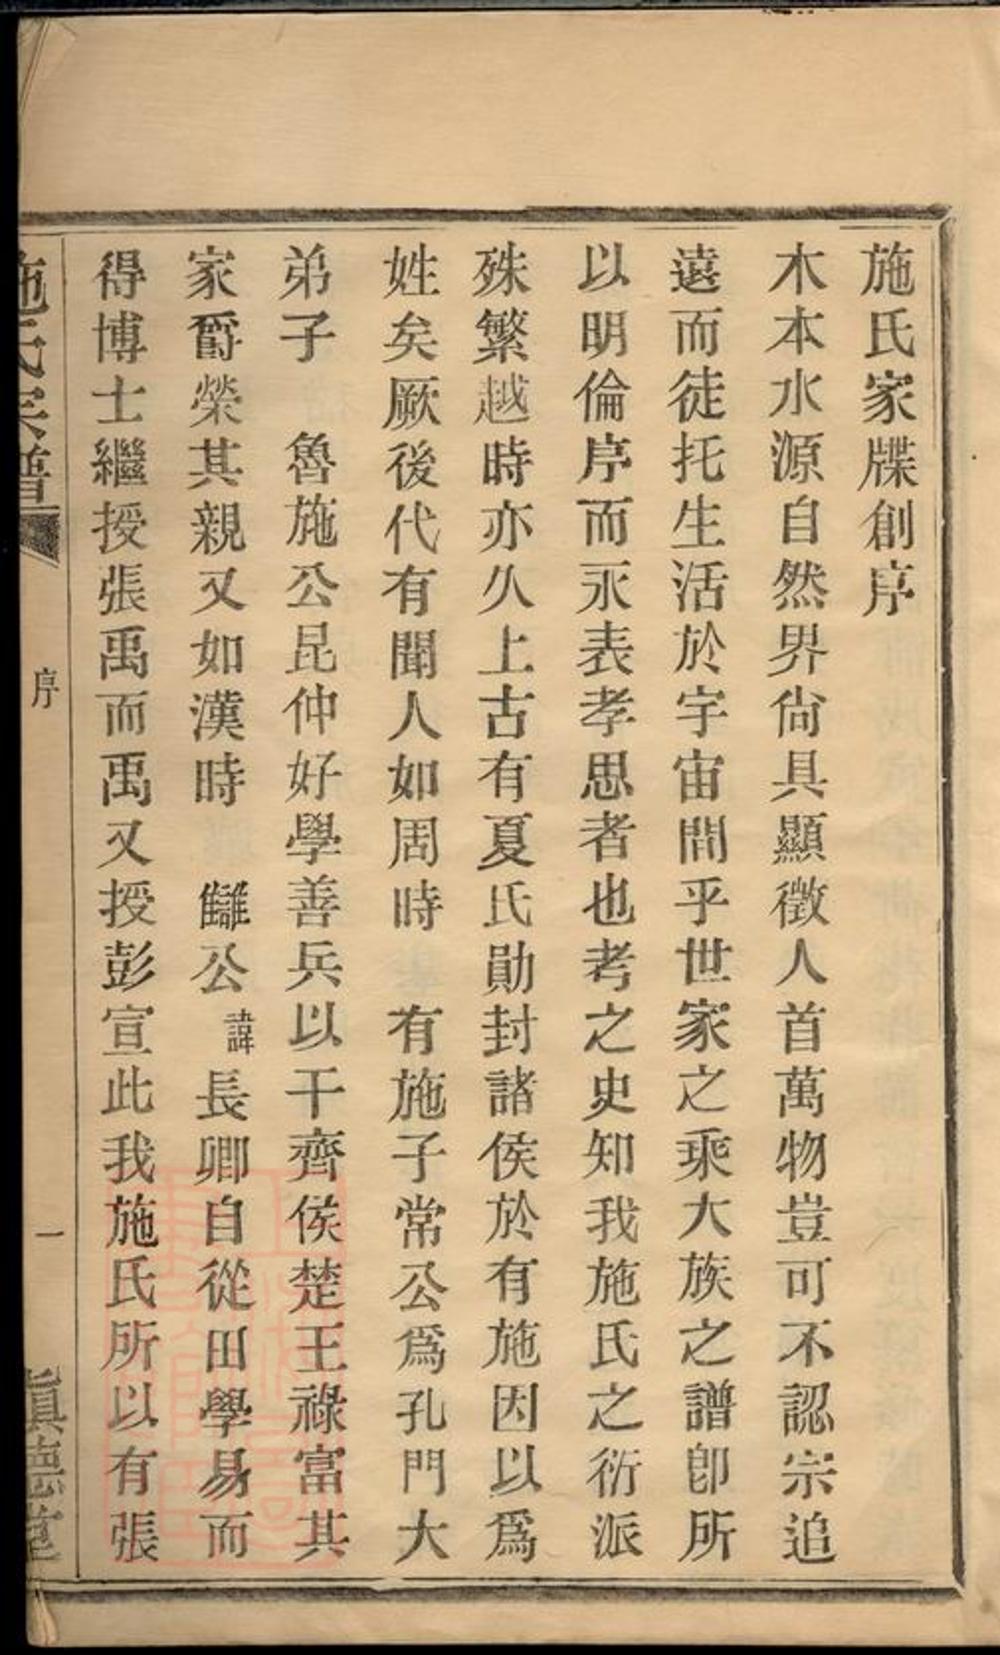 施氏家牒創序
木本水源自然界尙具顯徵人首萬物豈可不認宗追
遠而徒托生活於宇宙間乎世家之乘大族之譜卽所
以明倫序而永表孝思者也考之史知我施氏之衍派
殊繁越時亦久上古有夏氏勛封諸侯於有施因以爲
姓矣厥後代有聞人如周時　有施子常公爲孔門大
弟子　魯施公昆仲好學善兵以干齊侯楚王祿富其
家爵榮其親又如漢時　讎公諱長卿自從田學易而
得博士繼授張禹而禹又授彭宣此我施氏所以有張
施氏宗譜
序
一
眞德堂